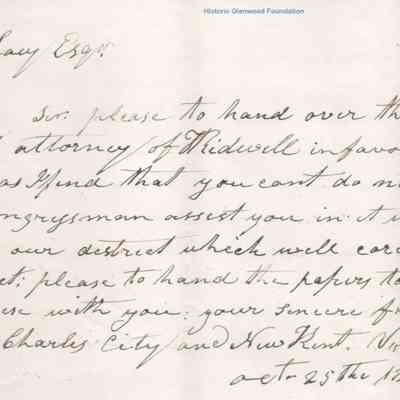 Historic Glenwood Foundation
Lacy Esqr.
Sir: please to hand over th
attorney of Tidwell in favo
as I find that you cant do
ngrysman assist you in it
our district which will
please to hand the papers to
with you: your sincere f
Charles City and New Kent.
oct 25 the